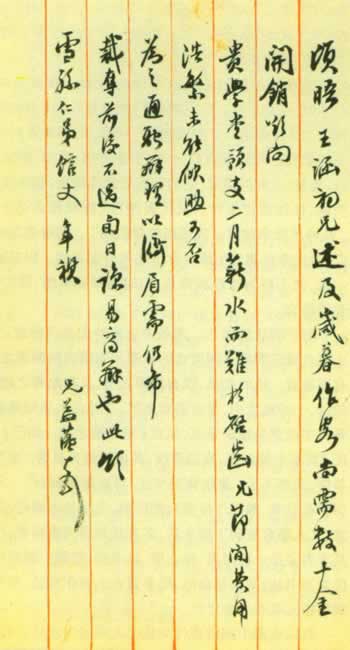 頃晤王涵初兄述及歲暮作客尚需數十金
開銷歟向
貴學堂預支二月薪水而難於啓齒兄節間費用
浩繁未能依助可否
為之通融辦理以濟眉需仍希
裁奪前後不過旬日諒易商辦也此頌
雪孫仁弟館丈 年禩
兄